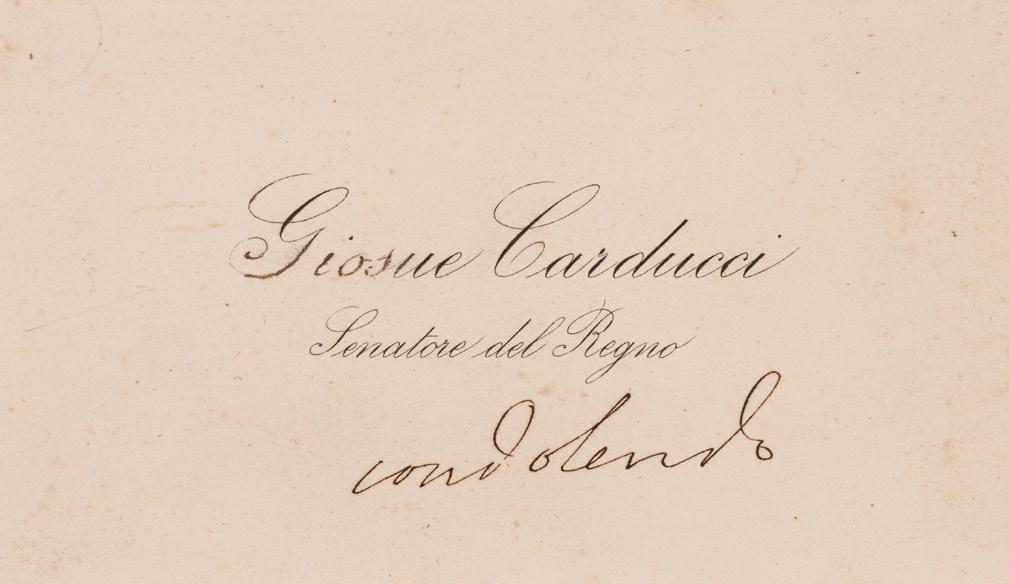 Giosue Carducci
Senatore del Regno
condolendo